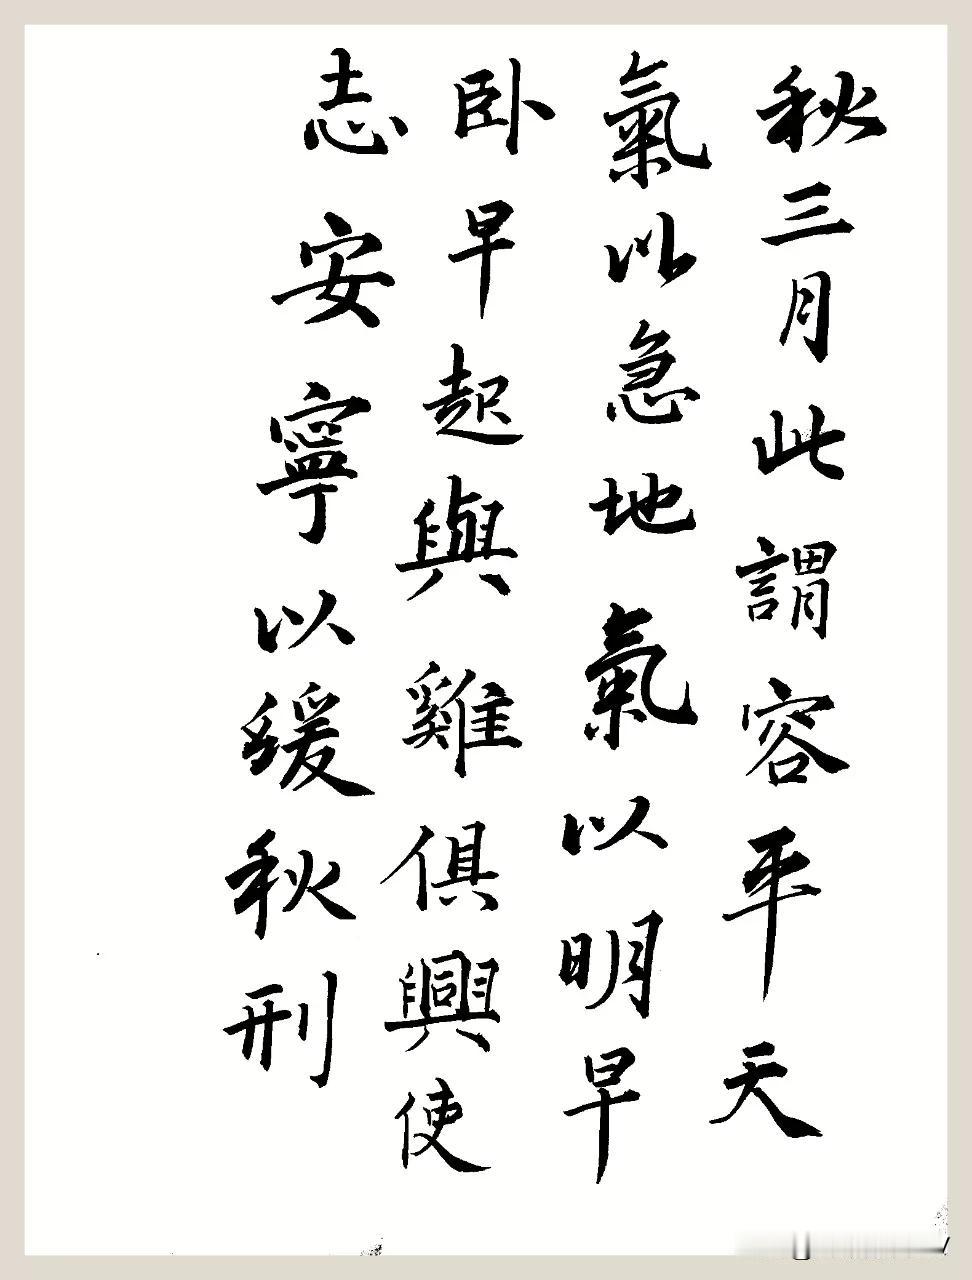 秋三月此謂容平天
氣以急地氣以明早
卧早起與雞俱興使
志安寧以緩秋刑